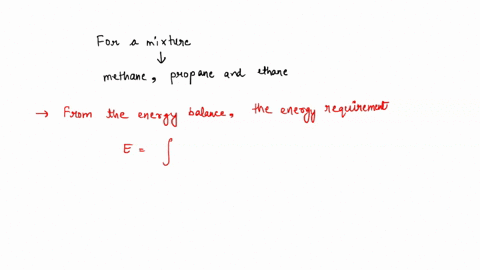 For a mixture
↓
methane, propane and ethane
→ From the energy balance, the energy requirement
E = ∫